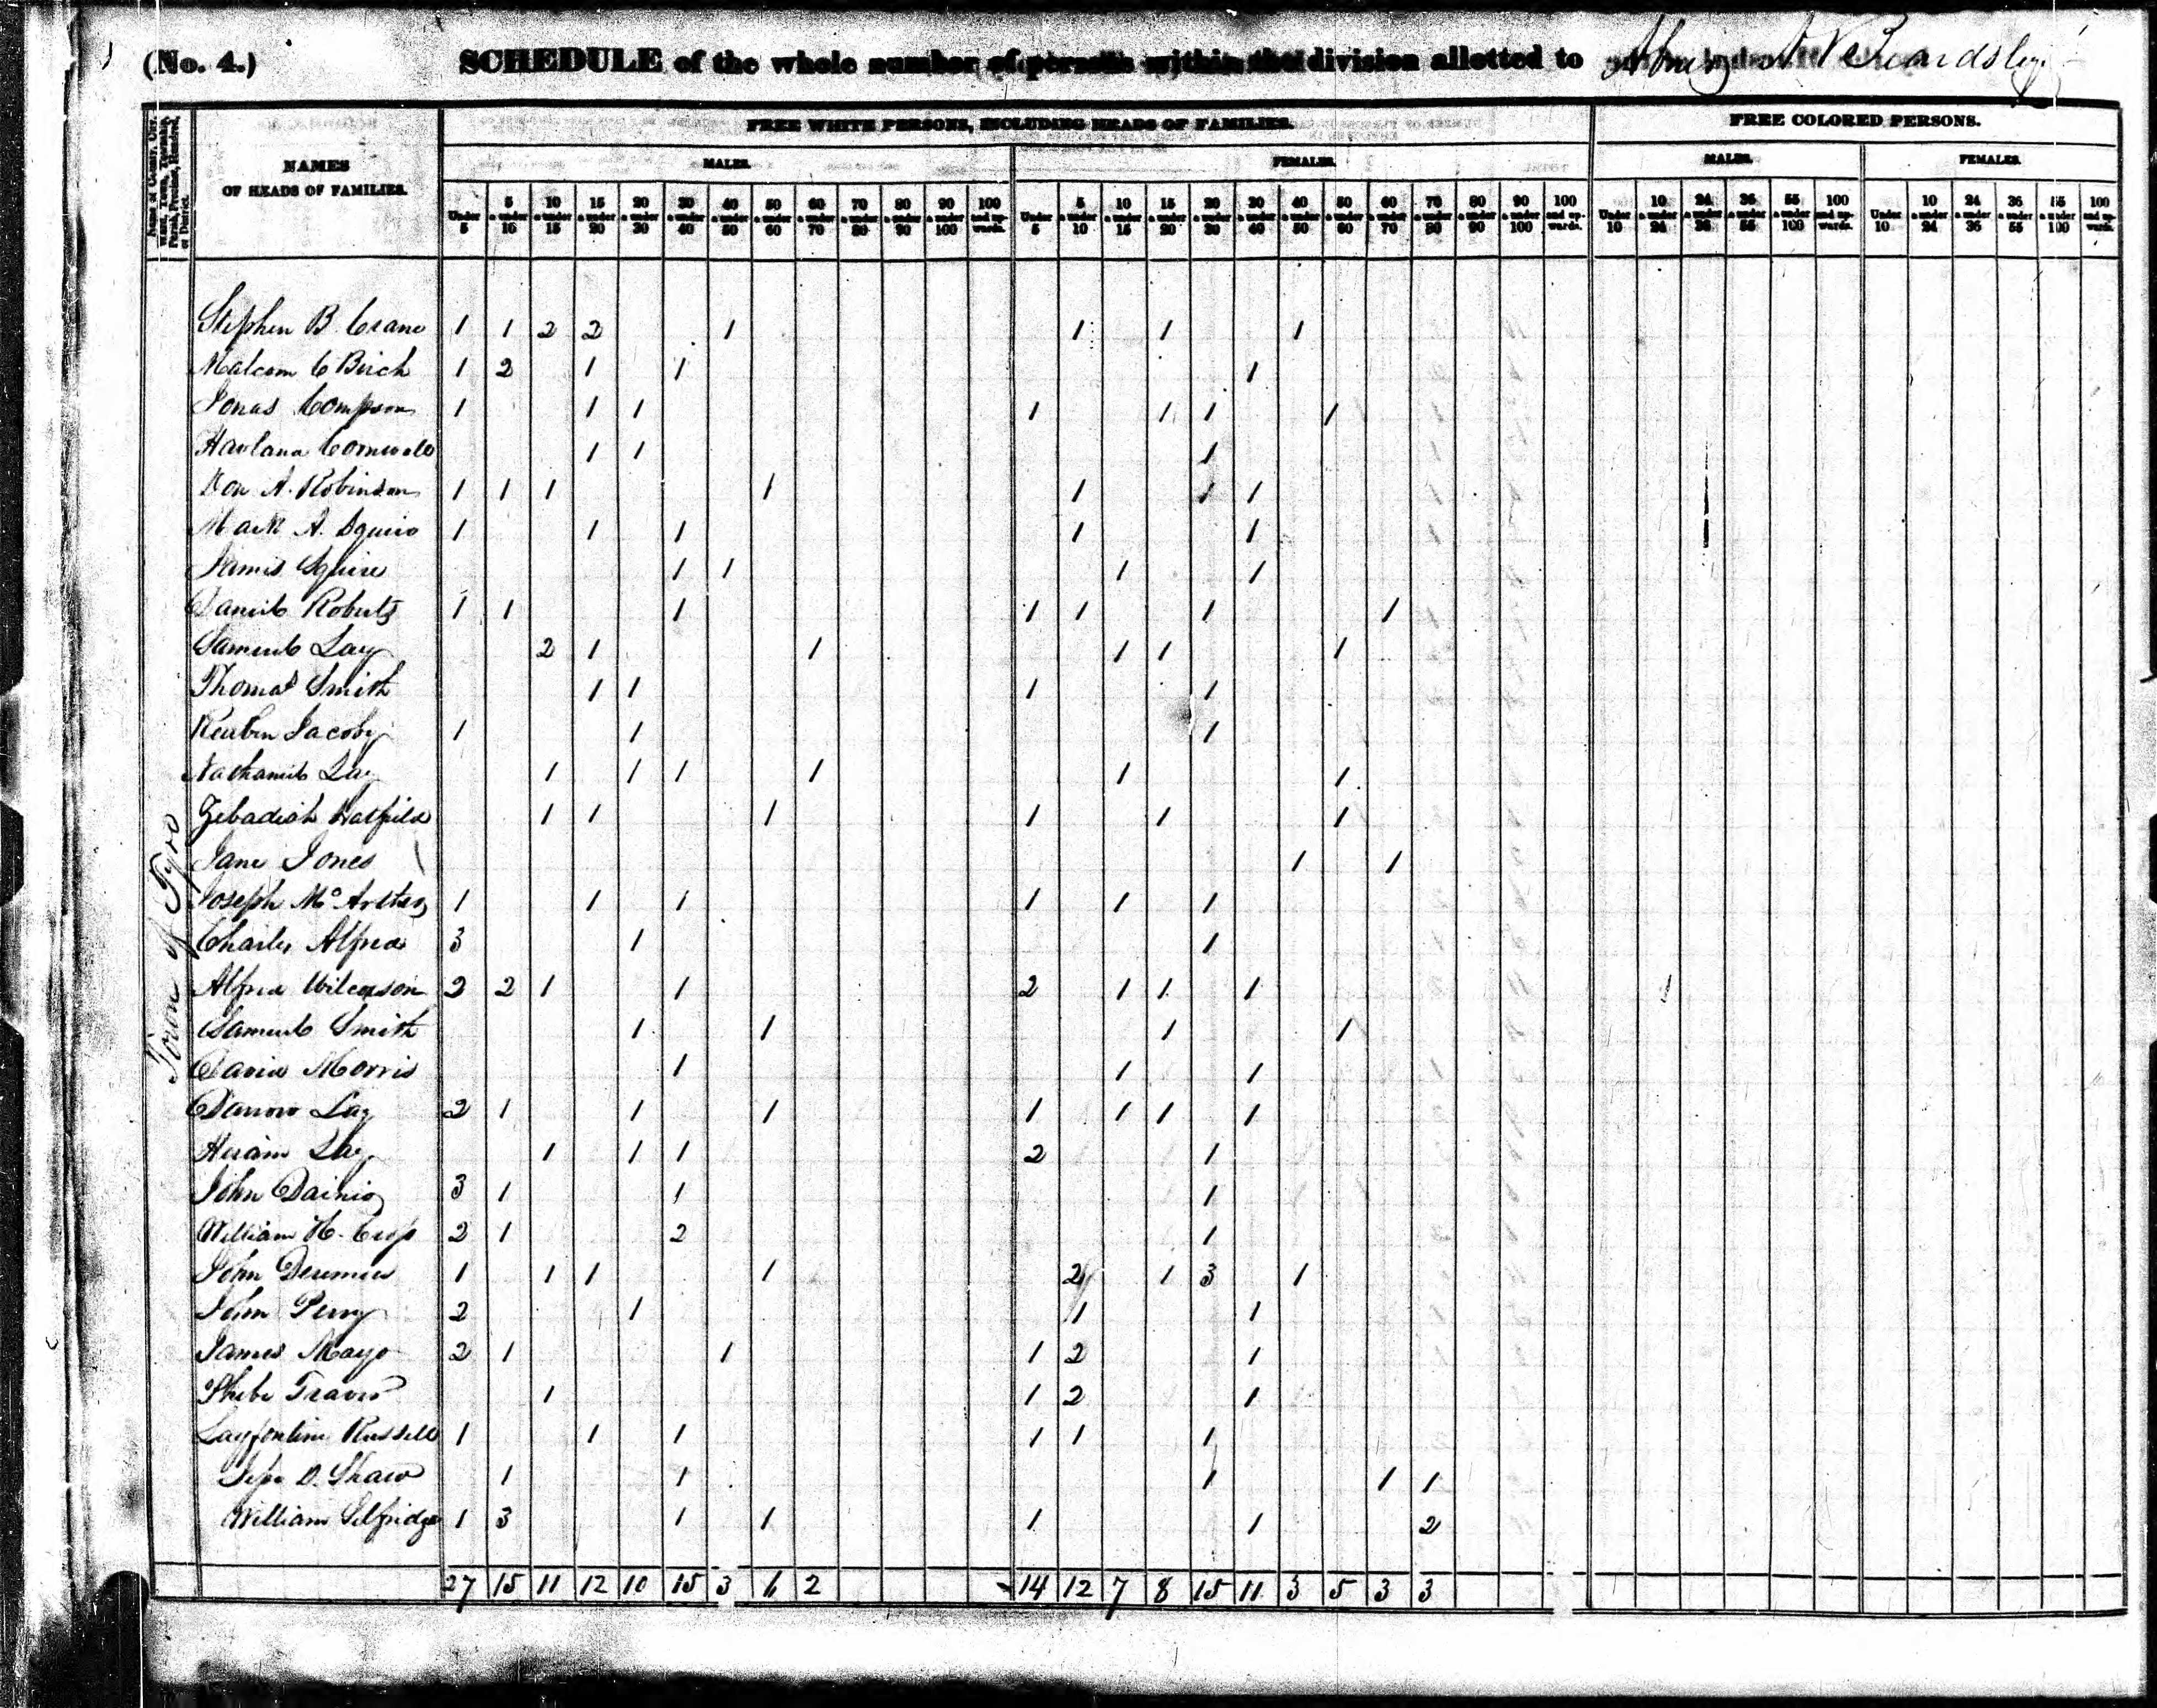 (No. 4.) SCHEDULE of the whole number of persons within the division allotted to
Name of County, City, Ward, Town, Township, Parish, Precinct, Hundred, or District.
NAMES OF HEADS OF FAMILIES.
FREE WHITE PERSONS, INCLUDING HEADS OF FAMILIES.
FREE COLORED PERSONS.
MALES. FEMALES. MALES. FEMALES.
Under 5 | 5 & under 10 | 10 & under 15 | 15 & under 20 | 20 & under 30 | 30 & under 40 | 40 & under 50 | 50 & under 60 | 60 & under 70 | 70 & under 80 | 80 & under 90 | 90 & under 100 | 100 and upwards. | Under 5 | 5 & under 10 | 10 & under 15 | 15 & under 20 | 20 & under 30 | 30 & under 40 | 40 & under 50 | 50 & under 60 | 60 & under 70 | 70 & under 80 | 80 & under 90 | 90 & under 100 | 100 and upwards. | Under 10 | 10 & under 24 | 24 & under 36 | 36 & under 55 | 55 & under 100 | 100 and upwards. | Under 10 | 10 & under 24 | 24 & under 36 | 36 & under 55 | 55 & under 100 | 100 and upwards.
Town of Tyro
Stephen B. Crane 1 1 2 2 1 1 1 1
Malcom C Birch 1 2 1 1 1
Jonas Compson 1 1 1 1 1 1 1
Harland Cornwell 1 1 1
Don A. Robinson 1 1 1 1 1 1 1
Mark A. Squire 1 1 1 1 1
James Squire 1 1 1 1
Daniel Roberts 1 1 1 1 1 1 1
Samuel Lay 2 1 1 1 1 1
Thomas Smith 1 1 1 1
Reuben Jacoby 1 1 1
Nathaniel Lay 1 1 1 1 1 1
Zebadiah Hatfield 1 1 1 1 1 1
Jane Jones 1 1
Joseph McArthur 1 1 1 1 1 1
Charles Alfred 3 1 1
Alfred Wilcoxson 2 2 1 1 2 1 1 1
Samuel Smith 1 1 1 1
David Morris 1 1 1
Darrow Lay 2 1 1 1 1 1 1 1
Hiram Lay 1 1 1 2 1
John 3 1 1 1
William H. 2 1 2 1
John 1 1 1 1 2 1 3 1
John Perry 2 1 1 1
James Mayo 2 1 1 1 2 1
Phebe Travis 1 1 2 1
Russell 1 1 1 1 1 1
D. Shaw 1 1 1 1 1
William Selfridge 1 3 1 1 1 1 2
27 15 11 12 10 15 3 6 2 14 12 7 8 15 11 3 5 3 3